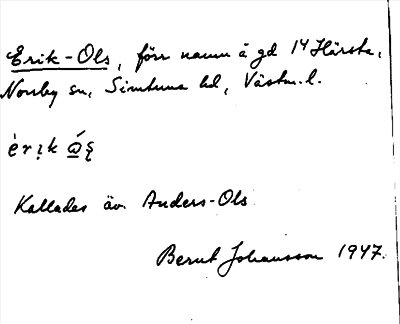 Erik-Ols, förr namn å gd 1⁴ Härsta,
Norrby sn, Simtuna hd, Västm. l.
Kallades äv. Anders-Ols
Bernt Johansson 1947.